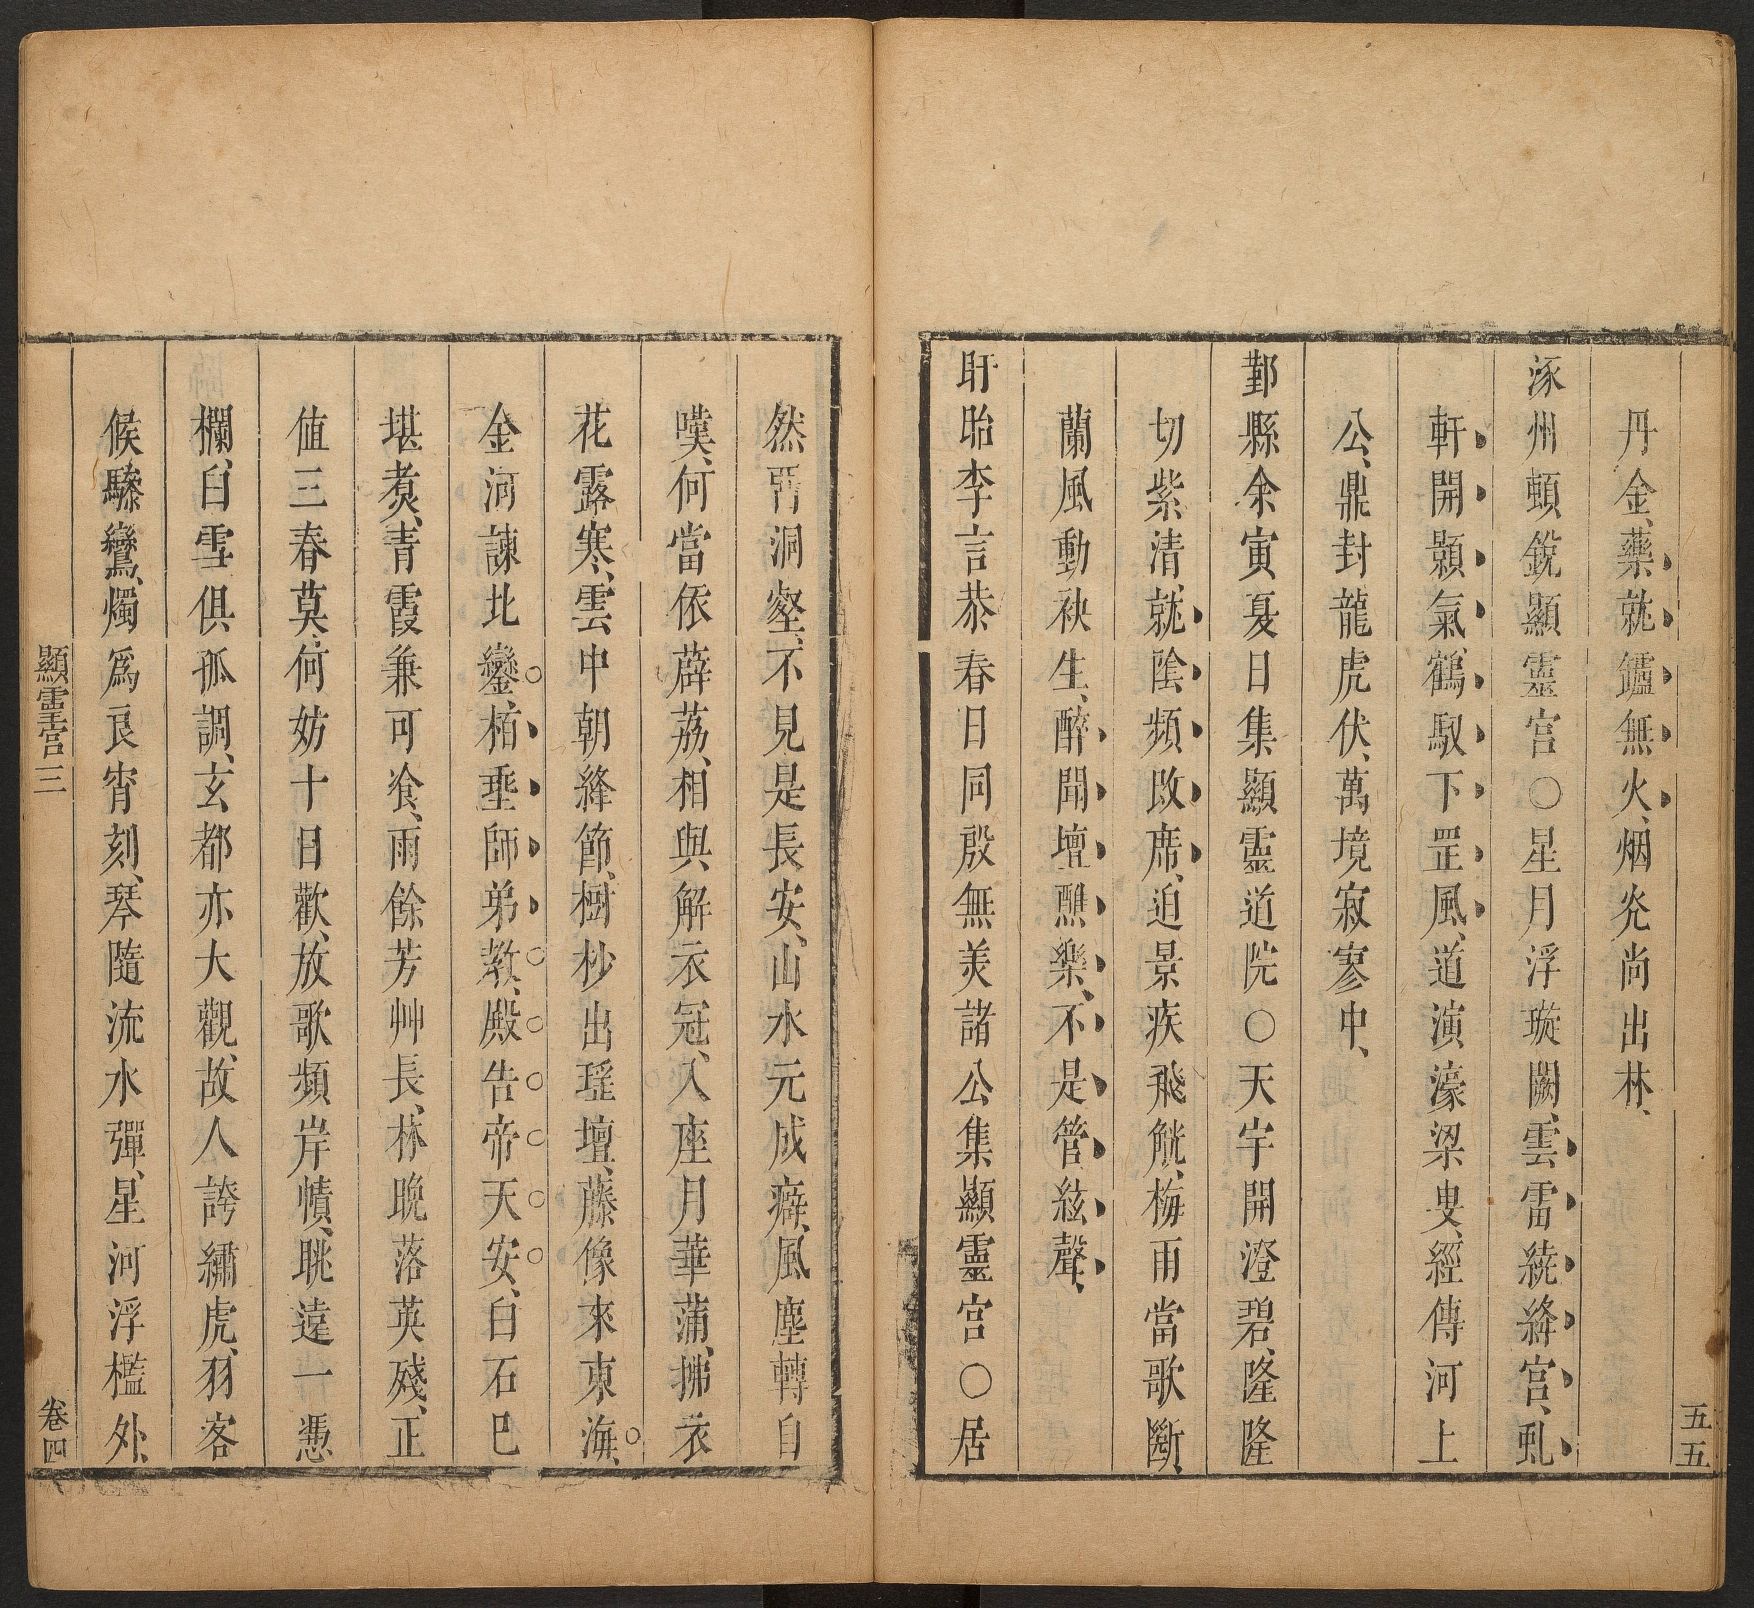 丹金、藥就鑪無火、烟炎尚出林、
涿州頓銳顯靈宮〇星月浮璇闕、雲雷繞絳宮、虬
軒開顥氣、鶴馭下罡風、道演濠梁叟、經傳河上
公、鼎封龍虎伏、萬境寂寥中、
鄞縣余寅夏日集顯靈道院〇天宇開澄碧、隆隆
切紫清、就陰頻改席、迫景疾飛觥、梅雨當歌斷、
蘭風動袂生、醉聞壇醮樂、不是管絃聲、
盱眙李言恭春日同殷無美諸公集顯靈宮〇居
五五
然丙洞壑、不見是長安、山水元成癖、風塵轉自
嘆、何當依薜荔、相與解衣冠、入座月華蒲、拂衣
花露寒、雲中朝絳節、樹杪出瑤壇、藤像來東海、
金河諫北鑾、栢埀師弟教、殿告帝天安、白石巳
堪煑、青霞兼可飡、雨餘芳艸長、林晚落英殘、正
值三春莫、何妨十日歡、放歌頻岸幘、眺遠一憑
欄、白雪俱孤調、玄都亦大觀、故人誇繡虎、羽客
候驂鸞、燭爲良宵刻、琴隨流水彈、星河浮檻外、
顯靈宮三
卷四